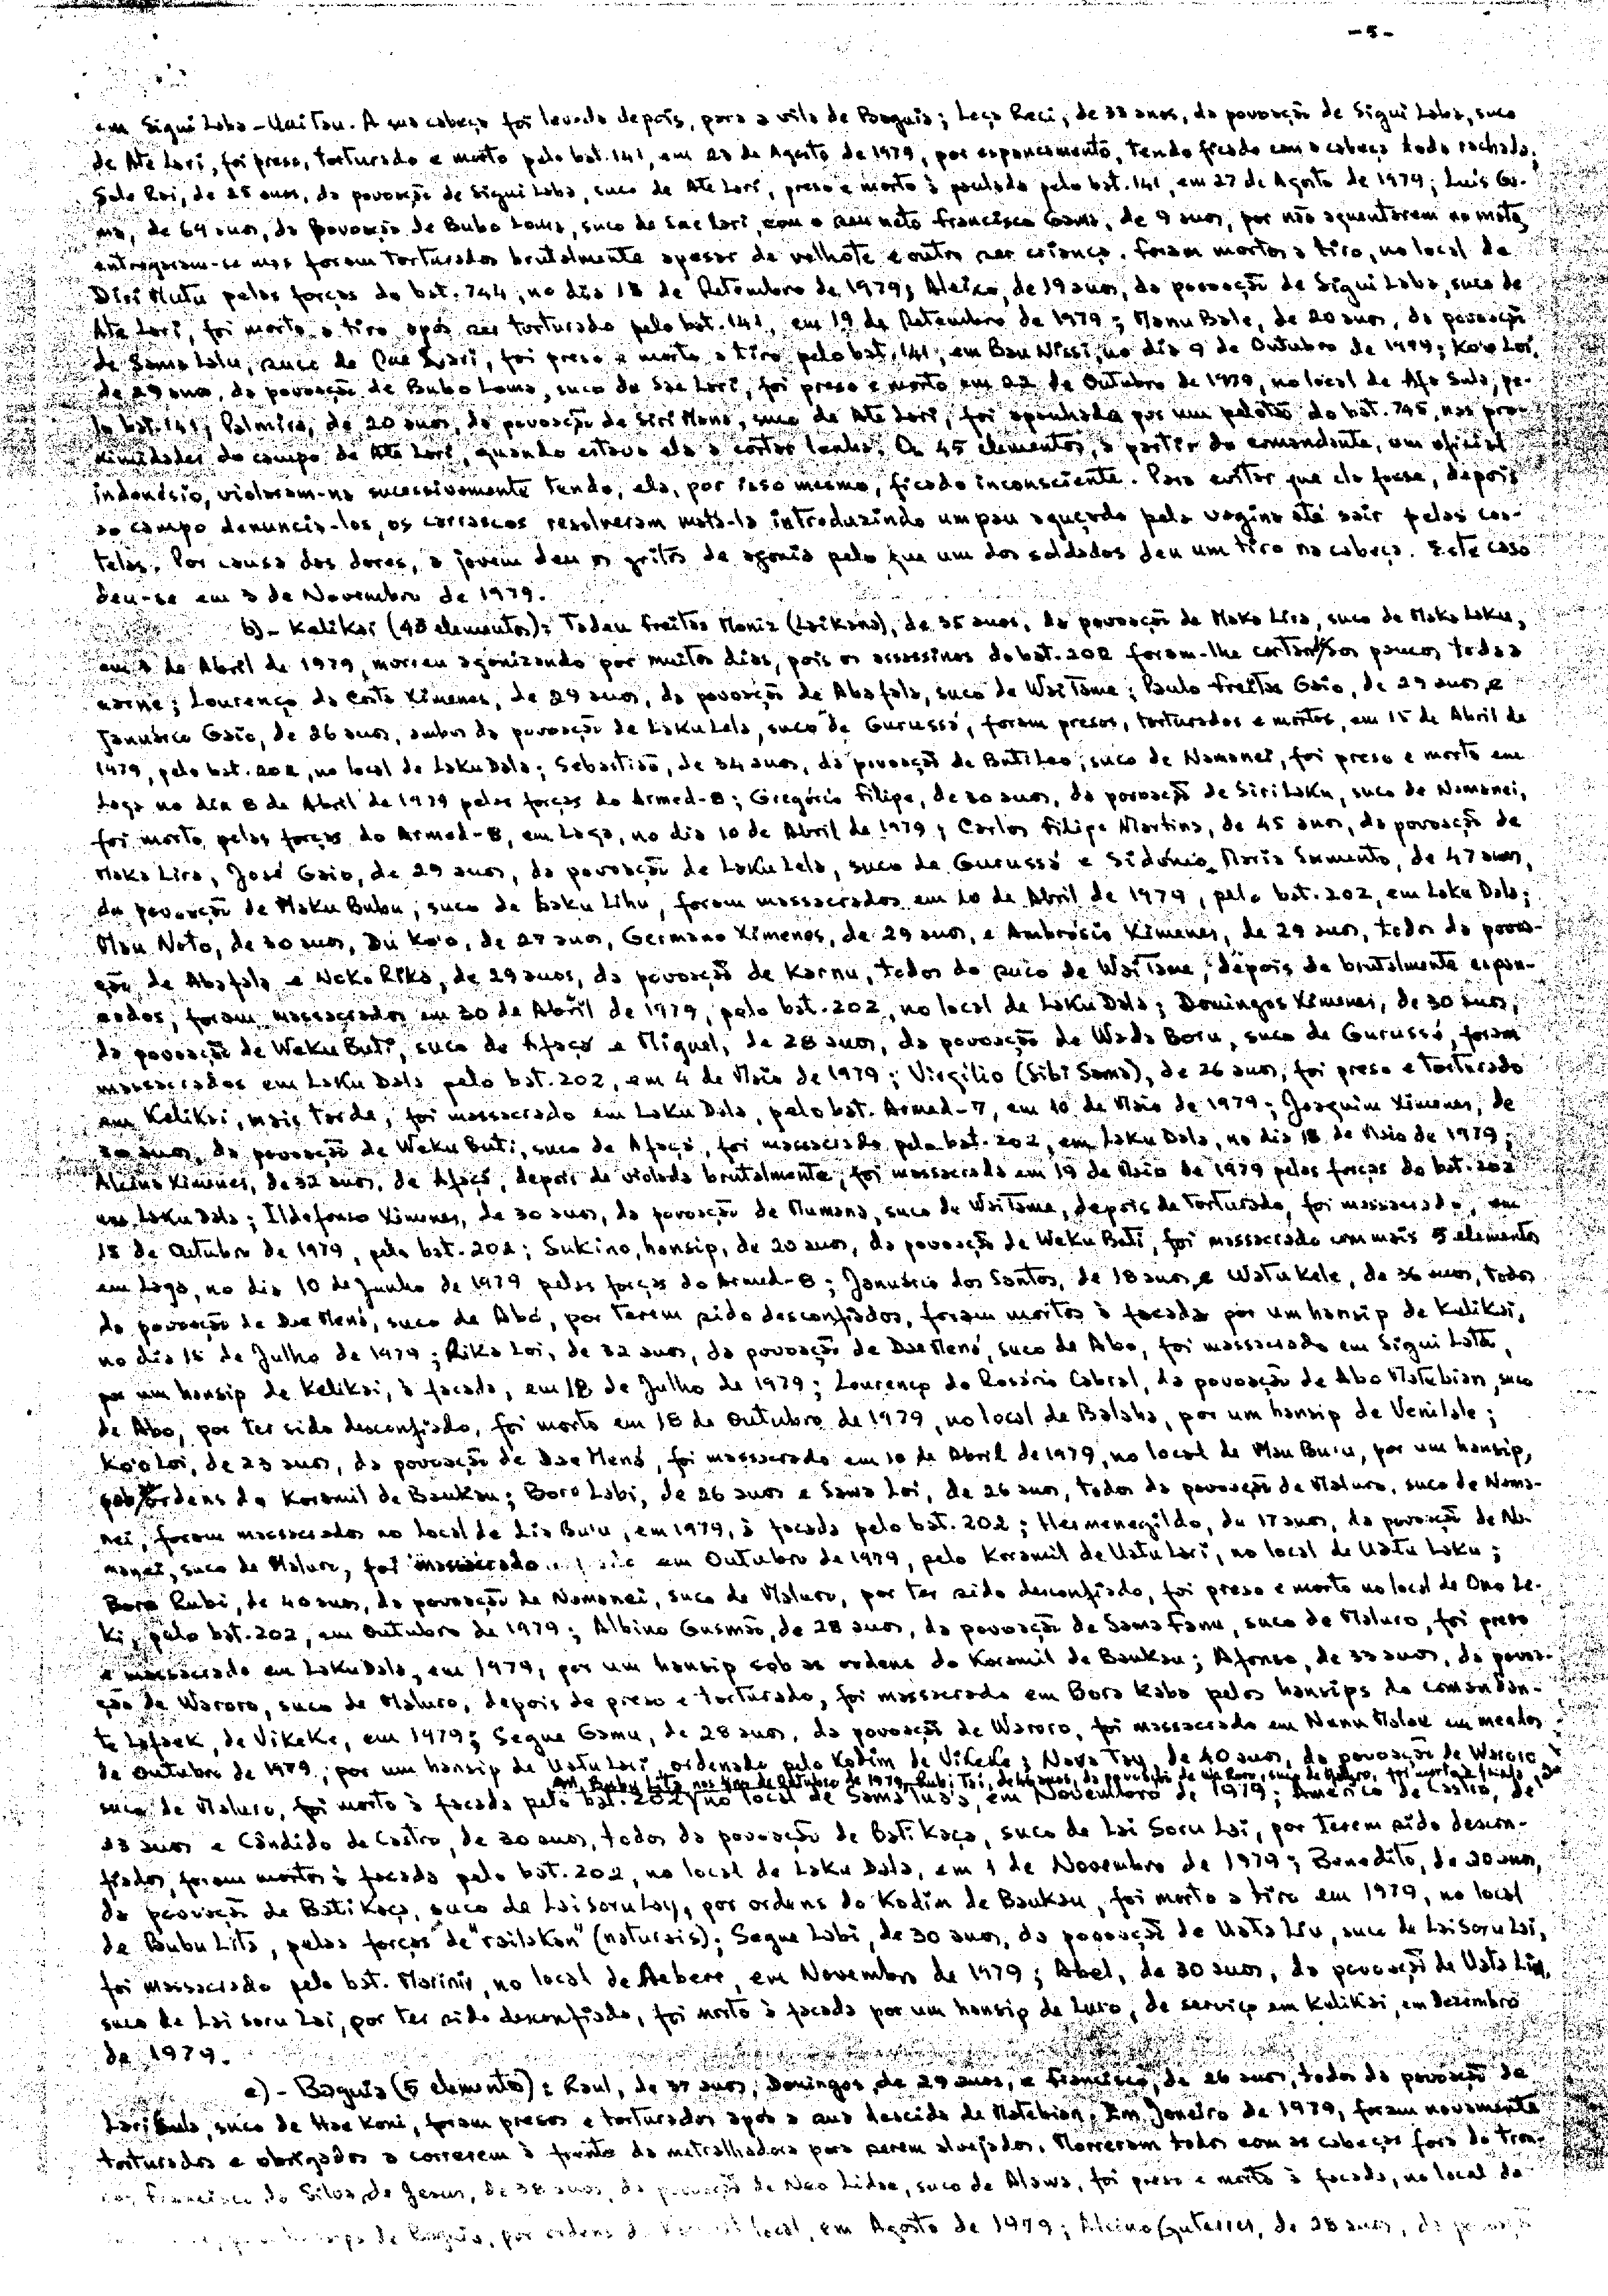 - 5 -
em Sigui Laba - Uai Tau. A sua cabeça foi levada depois, para a vila de Baguia; Leça Reci, de 33 anos, da povoação de Sigui Laba, suco
de Ate Lari, foi preso, torturado e morto pelo bat. 141, em 23 de Agosto de 1979, por espancamento, tendo ficado com a cabeça toda rachada;
Salo Roi, de 25 anos, da povoação de Sigui Laba, suco de Ate Lari, preso e morto à paulada pelo bat. 141, em 27 de Agosto de 1979; Luís Ga-
ma, de 69 anos, da povoação de Bubo Loma, suco de Sae Lari, com o seu neto Francisco Gama, de 9 anos, por não aguentarem no mato,
entregaram-se mas foram torturados brutalmente apesar de velhote e outro ser criança. Foram mortos a tiro, no local de
Disi Mutu pelas forças do bat. 744, no dia 18 de Setembro de 1979; Aleixo, de 19 anos, da povoação de Sigui Laba, suco de
Ate Lari, foi morto a tiro após ser torturado pelo bat. 141, em 19 de Setembro de 1979; Manu Bale, de 20 anos, da povoação
de Sama Lalu, suco de Lari, foi preso e morto a tiro pelo bat. 141, em Bau Nissi, no dia 9 de Outubro de 1979; Ko'o Loi,
de 29 anos, da povoação de Bubo Loma, suco de Sae Lari, foi preso e morto em 22 de Outubro de 1979, no local de Afa Sula, pe-
lo bat. 141; Palmira, de 20 anos, da povoação de Siri Mana, suco de Ate Lari, foi apanhada por um pelotão do bat. 745, nas pro-
ximidades do campo de Ate Lari, quando estava ela a cortar lenha. Os 45 elementos, a partir do comandante, um oficial
indonésio, violaram-na sucessivamente tendo, ela, por isso mesmo, ficado inconsciente. Para evitar que ela fosse, depois
ao campo denunciá-los, os carrascos resolveram matá-la introduzindo um pau aguçado pela vagina até sair pelas cos-
telas. Por causa das dores, a jovem deu os gritos de agonia pelo que um dos soldados deu um tiro na cabeça. Este caso
deu-se em 3 de Novembro de 1979.
b) - Kelikai (43 elementos): Tadeu Freitas Moniz (Laikana), de 35 anos, da povoação de Maka Lira, suco de Maka Laku,
em 4 de Abril de 1979, morreu agonizando por muitos dias, pois os assassinos do bat. 202 foram-lhe cortando aos poucos toda a
carne; Lourenço da Costa Ximenes, de 29 anos, da povoação de Abafala, suco de Wai Tame; Paulo Freitas Gaio, de 29 anos, e
Januário Gaio, de 26 anos, ambos da povoação de Laku Lela, suco de Gurussá, foram presos, torturados e mortos, em 15 de Abril de
1979, pelo bat. 202, no local de Laku Dala; Sebastião, de 34 anos, da povoação de Buti Lao, suco de Namanei, foi preso e morto em
Laga no dia 8 de Abril de 1979 pelas forças do Armed-8; Gregório Filipe, de 30 anos, da povoação de Siri Laku, suco de Namanei,
foi morto pelas forças do Armed-8, em Laga, no dia 10 de Abril de 1979; Carlos Filipe Martins, de 45 anos, da povoação de
Maka Lira, José Gaio, de 29 anos, da povoação de Laku Lela, suco de Gurussá e Sidónio Maria Sarmento, de 47 anos,
da povoação de Maku Bubu, suco de Laku Lihu, foram massacrados em 10 de Abril de 1979, pelo bat. 202, em Laku Dala;
Mau Nato, de 30 anos, Du Ko'o, de 27 anos, Germano Ximenes, de 29 anos, e Ambrósio Ximenes, de 29 anos, todos da povoa-
ção de Abafala e Neko Rika, de 29 anos, da povoação de Karnu, todos do suco de Wai Tame, depois de brutalmente espan-
cados, foram massacrados em 30 de Abril de 1979, pelo bat. 202, no local de Laku Dala; Domingos Ximenes, de 30 anos,
da povoação de Waku Buti, suco de Afaçá e Miguel, de 28 anos, da povoação de Wada Boru, suco de Gurussá, foram
massacrados em Laku Dala pelo bat. 202, em 4 de Maio de 1979; Virgílio (Sibi Sama), de 26 anos, foi preso e torturado
em Kelikai, mais tarde, foi massacrado em Laku Dala, pelo bat. Armed-7, em 10 de Maio de 1979; Joaquim Ximenes, de
30 anos, da povoação de Waku Buti, suco de Afaçá, foi massacrado pelo bat. 202, em Laku Dala, no dia 18 de Maio de 1979;
Alcina Ximenes, de 32 anos, de Afaçá, depois de violada brutalmente, foi massacrada em 19 de Maio de 1979 pelas forças do bat. 202
em Laku Dala; Ildefonso Ximenes, de 30 anos, da povoação de Mumana, suco de Wai Tame, depois de torturado, foi massacrado, em
15 de Outubro de 1979, pelo bat. 202; Sukino, hansip, de 20 anos, da povoação de Waku Bati, foi massacrado com mais 5 elementos
em Laga, no dia 10 de Junho de 1979 pelas forças do Armed-8; Januário dos Santos, de 18 anos, e Watu Kele, de 36 anos, todos
da povoação de Dae Mená, suco de Abó, por terem sido desconfiados, foram mortos à facada por um hansip de Kelikai,
no dia 15 de Julho de 1979; Rika Loi, de 32 anos, da povoação de Dae Mená, suco de Abo, foi massacrado em Sigui Lata,
por um hansip de Kelikai, à facada, em 18 de Julho de 1979; Lourenço do Rosário Cabral, da povoação de Abo Matebian, suco
de Abo, por ter sido desconfiado, foi morto em 18 de Outubro de 1979, no local de Balaha, por um hansip de Venilale;
Ko'o Loi, de 23 anos, da povoação de Dae Mená, foi massacrado em 10 de Abril de 1979, no local de Mau Bu'u, por um hansip,
sob ordens do Koramil de Baukau; Boro Labi, de 26 anos e Sawa Loi, de 26 anos, todos da povoação de Maluro, suco de Nama-
nei, foram massacrados no local de Lia Bu'u, em 1979, à facada pelo bat. 202; Hermenegildo, de 17 anos, da povoação de Na-
manei, suco de Maluro, foi massacrado em Outubro de 1979, pelo Koramil de Uatu Lari, no local de Uatu Laku;
Boro Rubi, de 40 anos, da povoação de Namanei, suco de Maluro, por ter sido desconfiado, foi preso e morto no local de Ono Le-
ki, pelo bat. 202, em Outubro de 1979; Albino Gusmão, de 28 anos, da povoação de Sama Fanu, suco de Maluro, foi preso
e massacrado em Laku Dala, em 1979, por um hansip sob as ordens do Koramil de Baukau; Afonso, de 33 anos, da povoa-
ção de Waroro, suco de Maluro, depois de preso e torturado, foi massacrado em Bora Kabo pelos hansips do comandan-
te Lafaek, de Vikeke, em 1979; Segue Gamu, de 28 anos, da povoação de Waroro, foi massacrado em Nanu Malae em meados
de Outubro de 1979, por um hansip de Uatu Lari, ordenado pelo Kodim de Vikeke; Nava Tay, de 40 anos, da povoação de Waroro
em Bubu Lita, nos fins de Outubro de 1979, Rubi Tai, de anos, da povoação de Wa Roro, suco de Maluro, foi morto à facada
suco de Maluro, foi morto à facada pelo bat. 202, no local de Sama Lua'a, em Novembro de 1979; Américo de Castro, de
33 anos e Cândido de Castro, de 30 anos, todos da povoação de Bati Kaça, suco de Lai Soru Lai, por terem sido descon-
fiados, foram mortos à facada pelo bat. 202, no local de Laku Dala, em 1 de Novembro de 1979; Benedito, de 20 anos,
da povoação de Bati Kaça, suco de Laisorulay, por ordens do Kodim de Baukau, foi morto a tiro em 1979, no local
de Bubu Lita, pelas forças de "railakan" (naturais); Segue Labi, de 30 anos, da povoação de Uata Liu, suco de Laisoru Lai,
foi massacrado pelo bat. Marinir, no local de Aebere, em Novembro de 1979; Abel, de 30 anos, da povoação de Uata Liu,
suco de Lai Soru Lai, por ter sido desconfiado, foi morto à facada por um hansip de Luro, de serviço em Kelikai, em Dezembro
de 1979.
c) - Baguia (5 elementos): Raul, de 37 anos, Domingos, de 29 anos, e Francisco, de 26 anos, todos da povoação de
Lari Sula, suco de Hae Koni, foram presos e torturados após a sua descida de Matebian. Em Janeiro de 1979, foram novamente
torturados e obrigados a correrem à frente da metralhadora para serem alvejados. Morreram todos com as cabeças fora do tron-
co; Francisco da Silva de Jesus, de 38 anos, da povoação de Nao Lidae, suco de Alawa, foi preso e morto à facada, no local de
de Baguia, por ordens do local, em Agosto de 1979; Alcino Guterres, de 28 anos, da povoação